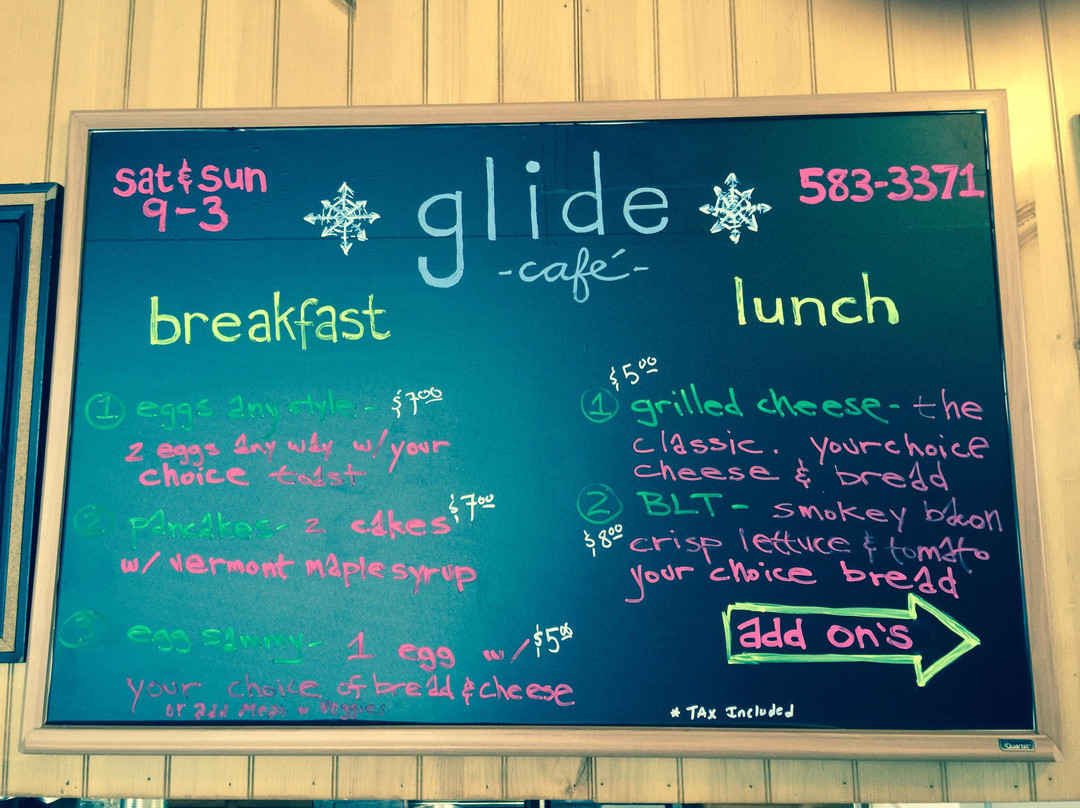 sat & sun
9-3
glide
-café-
583-3371
breakfast
① eggs any style - $7.00
2 eggs any way w/your
choice toast
② pancakes - 2 cakes $7.00
w/ vermont maple syrup
③ egg sammy - 1 egg w/ $5.00
your choice of bread & cheese
or add meat or veggies
lunch
$5.00
① grilled cheese - the
classic. your choice
cheese & bread
② BLT - smokey bacon
$8.00 crisp lettuce & tomato
your choice bread
add on's
* TAX Included
Quartet